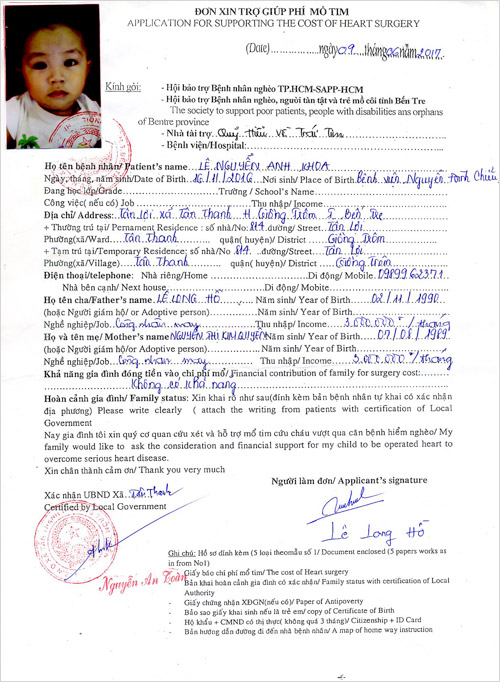 ĐƠN XIN TRỢ GIÚP PHÍ MỔ TIM
APPLICATION FOR SUPPORTING THE COST OF HEART SURGERY
(Date)………………ngày 09 tháng 06 năm 2017
Kính gởi: - Hội bảo trợ Bệnh nhân nghèo TP.HCM-SAPP-HCM
- Hội bảo trợ Bệnh nhân nghèo, người tàn tật và trẻ mồ côi tỉnh Bến Tre
The society to support poor patients, people with disabilities ans orphans
of Bentre province
- Nhà tài trợ Quỹ Hiểu Về Trái Tim
- Bệnh viện/Hospital:
Họ tên bệnh nhân/ Patient's name LÊ NGUYỄN ANH KHOA
Ngày, tháng, năm sinh/Date of Birth 16/11/2016 Nơi sinh/ Place of Birth Bệnh viện Nguyễn Đình Chiểu
Đang học lớp/Grade Trường / School's Name
Công việc( nếu có) Job Thu nhập/ Income
Địa chỉ/ Address: Tân Lợi xã Tân Thanh H Giồng Trôm T Bến Tre
+ Thường trú tại/ Permanent Residence : số nhà/No: 814 đường/ Street. Tân Lợi
Phường(xã/Ward Tân Thanh quận( huyện)/ District Giồng Trôm
+ Tạm trú tại/Temporary Residence: số nhà/No 814 đường/Street Tân Lợi
Phường(xã/Village) Tân Thanh quận( huyện)/ District Giồng Trôm
Điện thoại/telephone: Nhà riêng/Home Di động/ Mobile. 0989962337.1
Nhà bên cạnh/ Next house Di động/ Mobite
Họ tên cha/Father's name LÊ LONG HỒ Năm sinh/ Year of Birth 02/11/1990
(hoặc Người giám hộ/ or Adoptive person) Năm sinh/ Year of Birth
Nghề nghiệp/Job Công nhân may Thu nhập/ Income 3.000.000đ / tháng
Họ và tên mẹ/ Mother's name NGUYỄN THỊ KIM QUYÊN Năm sinh/ Year of Birth 07/08/1989
(hoặc Người giám hộ/ or Adoptive person) Năm sinh/ Year of Birth
Nghề nghiệp/Job Công nhân may Thu nhập/ Income 3.000.000đ / tháng
Khả năng gia đình đóng tiền vào chi phí mổ/ Financial contribution of family for surgery cost:
Không có khả năng
Hoàn cảnh gia đình/ Family status: Xin khai rõ như sau(đính kèm bản bệnh nhân tự khai có xác nhận
địa phương) Please write clearly ( attach the writing from patients with certification of Local
Government
Nay gia đình tôi xin quý cơ quan cứu xét và hỗ trợ mổ tim cứu cháu vượt qua căn bệnh hiểm nghèo/ My
family would like to ask the consideration and financial support for my child to be operated heart to
overcome serious heart disease.
Xin chân thành cảm ơn/ Thank you very much
Người làm đơn/ Applicant's signature
Xác nhận UBND Xã Tân Thanh
Certified by Local Government
Lê Long Hồ
Nguyễn An Toàn
Ghi chú: Hồ sơ đính kèm (5 loại theomẫu số 1/ Document enclosed (5 papers works as
in from No1)
- Giấy báo chi phí mổ tim/ The cost of Heart surgery
- Bản khai hoàn cảnh gia đình có xác nhận/ Family status with certification of Local
Authority
- Giấy chứng nhận XĐGN(nếu có)/ Paper of Antipoverty
- Bảo sao giấy khai sinh nếu là trẻ em/ copy of Certificate of Birth
- Hộ khẩu + CMND có thị thực( không quá 3 tháng)/ Citizenship + ID Card
- Bản hướng dẫn đường đi đến nhà bệnh nhân/ A map of home way instruction